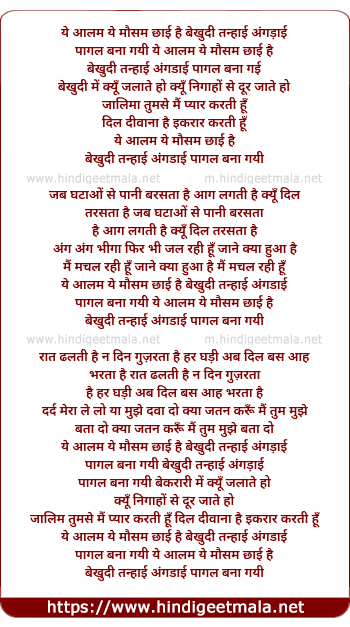 ये आलम ये मौसम छाई है बेखुदी तन्हाई अंगड़ाई
पागल बना गयी ये आलम ये मौसम छाई है
बेखुदी तन्हाई अंगडाई पागल बना गई
बेखुदी में क्यूँ जलाते हो क्यूँ निगाहों से दूर जाते हो
जालिमा तुमसे मैं प्यार करती हूँ
दिल दीवाना है इकरार करती हूँ
ये आलम ये मौसम छाई है
बेखुदी तन्हाई अंगडाई पागल बना गयी
www.hindigeetmala.net m.hindigeetmala.net
जब घटाओं से पानी बरसता है आग लगती है क्यूँ दिल
तरसता है जब घटाओं से पानी बरसता
है आग लगती है क्यूँ दिल तरसता है
अंग अंग भीगा फिर भी जल रही हूँ जाने क्या हुआ है
मैं मचल रही हूँ जाने क्या हुआ है मैं मचल रही हूँ
ये आलम ये मौसम छाई है बेखुदी तन्हाई अंगडाई
पागल बना गयी ये आलम ये मौसम छाई है
बेखुदी तन्हाई अंगडाई पागल बना गयी
www.hindigeetmala.net m.hindigeetmala.net
रात ढलती है न दिन गुज़रता है हर घड़ी अब दिल बस आह
भरता है रात ढलती है न दिन गुज़रता
है हर घड़ी अब दिल बस आह भरता है
दर्द मेरा ले लो या मुझे दवा दो क्या जतन करूँ मैं तुम मुझे
बता दो क्या जतन करूँ मैं तुम मुझे बता दो
ये आलम ये मौसम छाई है बेखुदी तन्हाई अंगड़ाई
पागल बना गयी बेखुदी तन्हाई अंगड़ाई
पागल बना गयी बेकरारी में क्यूँ जलाते हो
क्यूँ निगाहों से दूर जाते हो
जालिम तुमसे मैं प्यार करती हूँ दिल दीवाना है इकरार करती हूँ
ये आलम ये मौसम छाई है बेखुदी तन्हाई अंगडाई
पागल बना गयी ये आलम ये मौसम छाई है
बेखुदी तन्हाई अंगडाई पागल बना गयी
https://www.hindigeetmala.net